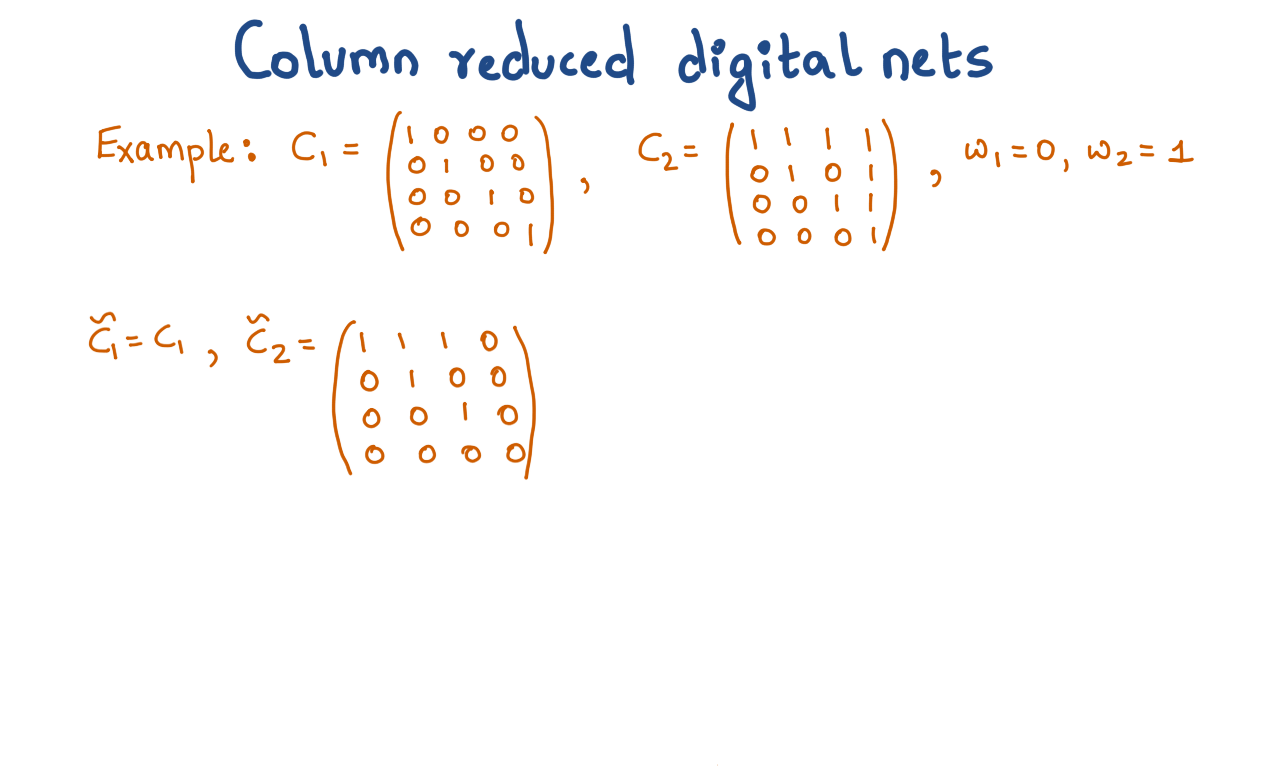 Column reduced digital nets
Example: C₁ = (1 0 0 0 / 0 1 0 0 / 0 0 1 0 / 0 0 0 1), C₂ = (1 1 1 1 / 0 1 0 1 / 0 0 1 1 / 0 0 0 1), ω₁ = 0, ω₂ = 1
C̃₁ = C₁, C̃₂ = (1 1 1 0 / 0 1 0 0 / 0 0 1 0 / 0 0 0 0)